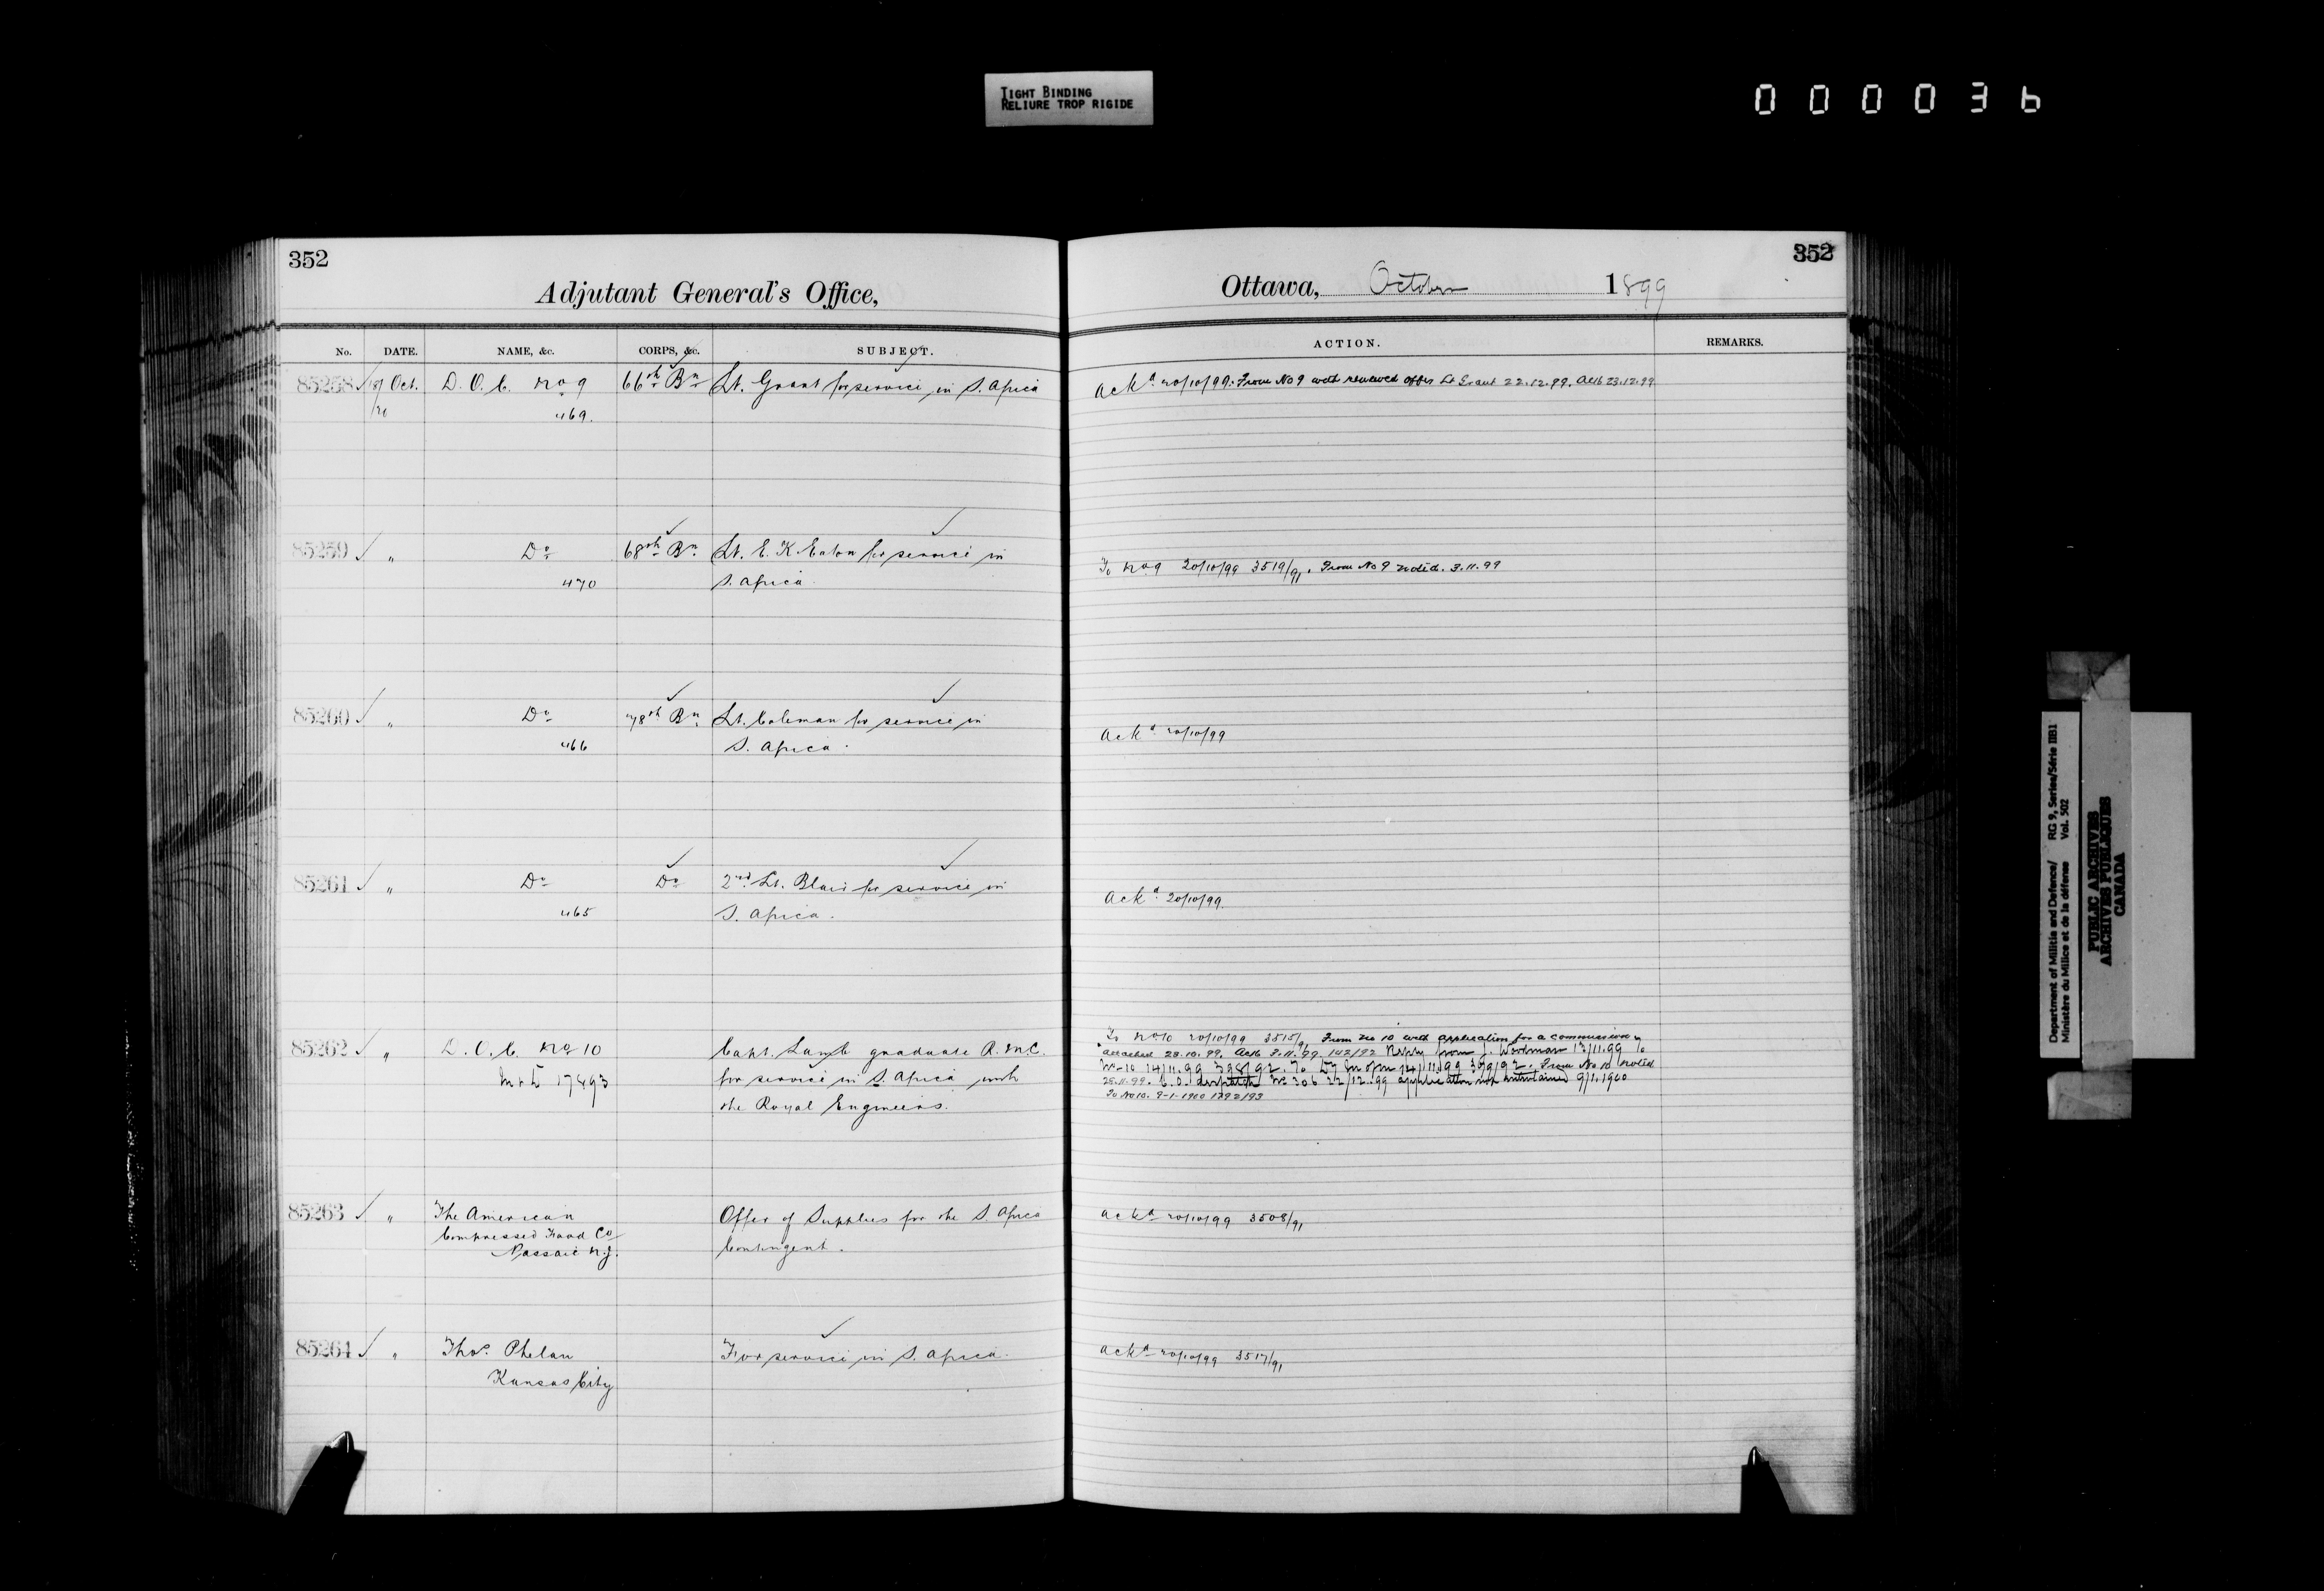 TIGHT BINDING
RELIURE TROP RIGIDE
000036
352
Adjutant General's Office,
No. DATE. NAME, &c. CORPS, &c. SUBJECT.
85258 ✓ 19/20 Oct. D. O. C. No 9 66th Bn Lt. Grant for service in S. Africa
469.
85259 ✓ " Do 68th Bn Lt. E. K. Eaton for service in
470 S. Africa
85260 ✓ " Do 78th Bn Lt. Coleman for service in
466 S. Africa.
85261 ✓ " Do Do 2nd Lt. Blair for service in
465 S. Africa.
85262 ✓ " D. O. C. No 10 Capt. Lamb graduate R. M. C.
17493 for service in S. Africa with
the Royal Engineers.
85263 ✓ " The American Offer of Supplies for the S. Africa
Compressed Food Co Contingent.
Passaic N.J.
85264 ✓ " Thos. Phelan For service in S. Africa.
Kansas City
352
Ottawa, October 1899
ACTION. REMARKS.
Ackd 20/10/99. From No 9 with renewed offer Lt Grant 22.12.99. Ack 23.12.99
To No 9 20/10/99 3519/91. From No 9 noted. 3.11.99
Ackd 20/10/99
Ackd 20/10/99.
To No 10 20/10/99 3515/91 From No 10 with application for a commission
attached 28.10.99. Ack 3.11.99 142/92 Reply from J. Woodman 13/11.99 To
No 10 14/11.99 398/92. To 14/11.99 399/92. From No 10 noted
25.11.99. C.O. despatch No 306 22/12.99 application not entertained 9/1.1900
To No 10. 9-1-1900 1792/93
Ackd 20/10/99 3508/91
Ackd 20/10/99 3517/91
Department of Militia and Defence/ RG 9, Series/Série IIB1
Ministère du Milice et de la défense Vol. 502
PUBLIC ARCHIVES
ARCHIVES PUBLIQUES
CANADA